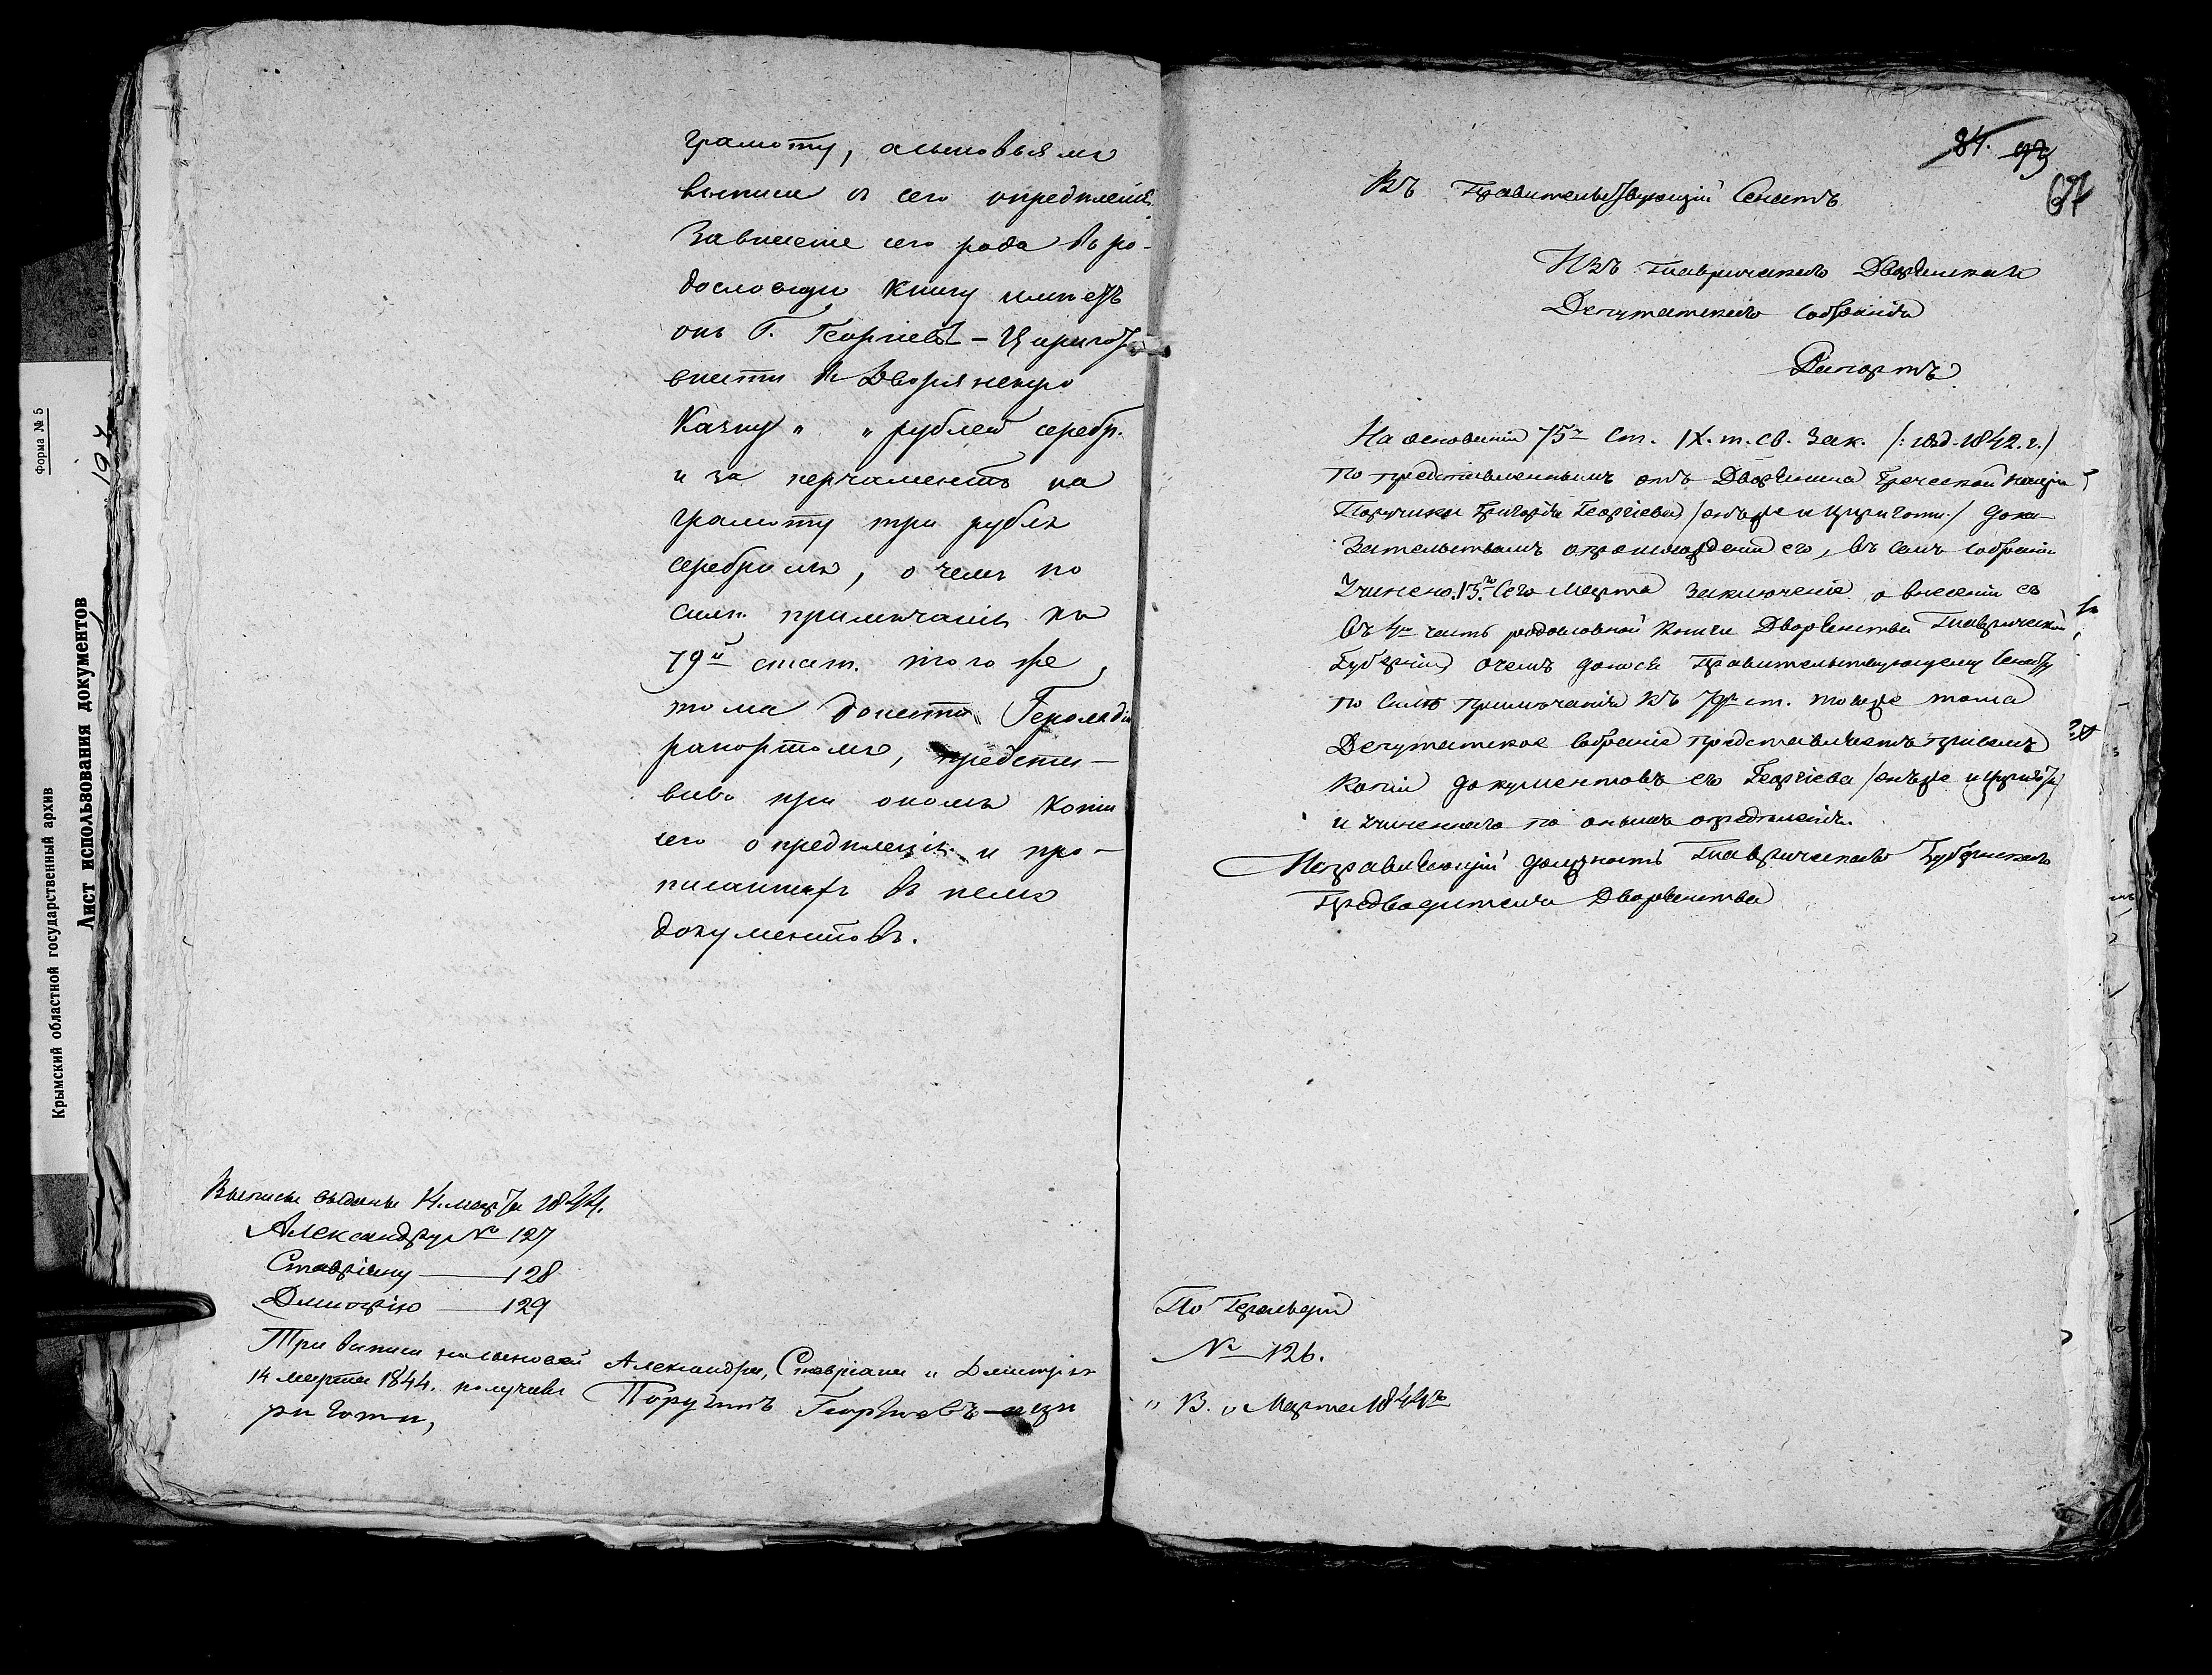 Форма № 5
Крымский областной государственный архив
Лист использования документов
197
грамоту, а сыновьямъ
выписи съ сего опредѣленія
За внесеніе сего рода въ ро-
дословную книгу имѣетъ
онъ Г. Георгіевъ-Циригот
внести въ Дворянскую
Казну „ „ рублей серебр.
и за пергаментъ на
грамоту три рубля
серебромъ, о чемъ по
силѣ примѣчанія къ
79й стат. того же
тома донести Герольдіи
рапортомъ, предста-
вивъ при ономъ копіи
сего опредѣленія и про-
писанныхъ въ немъ
документовъ.
Выписи выданы 14. марта 1844.
Александру № 127
Ставріану — 128
Дмитрію — 129
Три выписи на сыновей Александра, Ставріана и Дмитрія
14 марта 1844. получилъ Поручикъ Георгіевъ-Ци
риготи,
84. 93
67
Въ Правительствующій Сенатъ
Изъ Таврическаго Дворянскаго
Депутатскаго Собранія
Рапортъ.
На основаніи 75й Ст. IX. т. св. Зак. /: изд. 1842. г./
по представленнымъ отъ Дворянина Греческой націи
Поручика Григорія Георгіева /онъ же и Цириготи./ дока-
зательствамъ о происхожденіи его, въ семъ Собраніи
Учинено 13го Сего Марта заключеніе о внесеніи его
въ часть родословной Книги Дворянства Таврической
Губерніи, о чемъ донося Правительствующему Сенату
по Силѣ примѣчанія къ 79й ст. того же тома
Депутатское Собраніе представляетъ при семъ
Копіи документовъ его Георгіева /онъ же и Цириготи/
и учиненнаго по онымъ опредѣленія.
Исправляющій должность Таврическаго Губернскаго
Предводителя Дворянства
По Герольдіи
№ 126.
„ 13. „ Марта 1844го